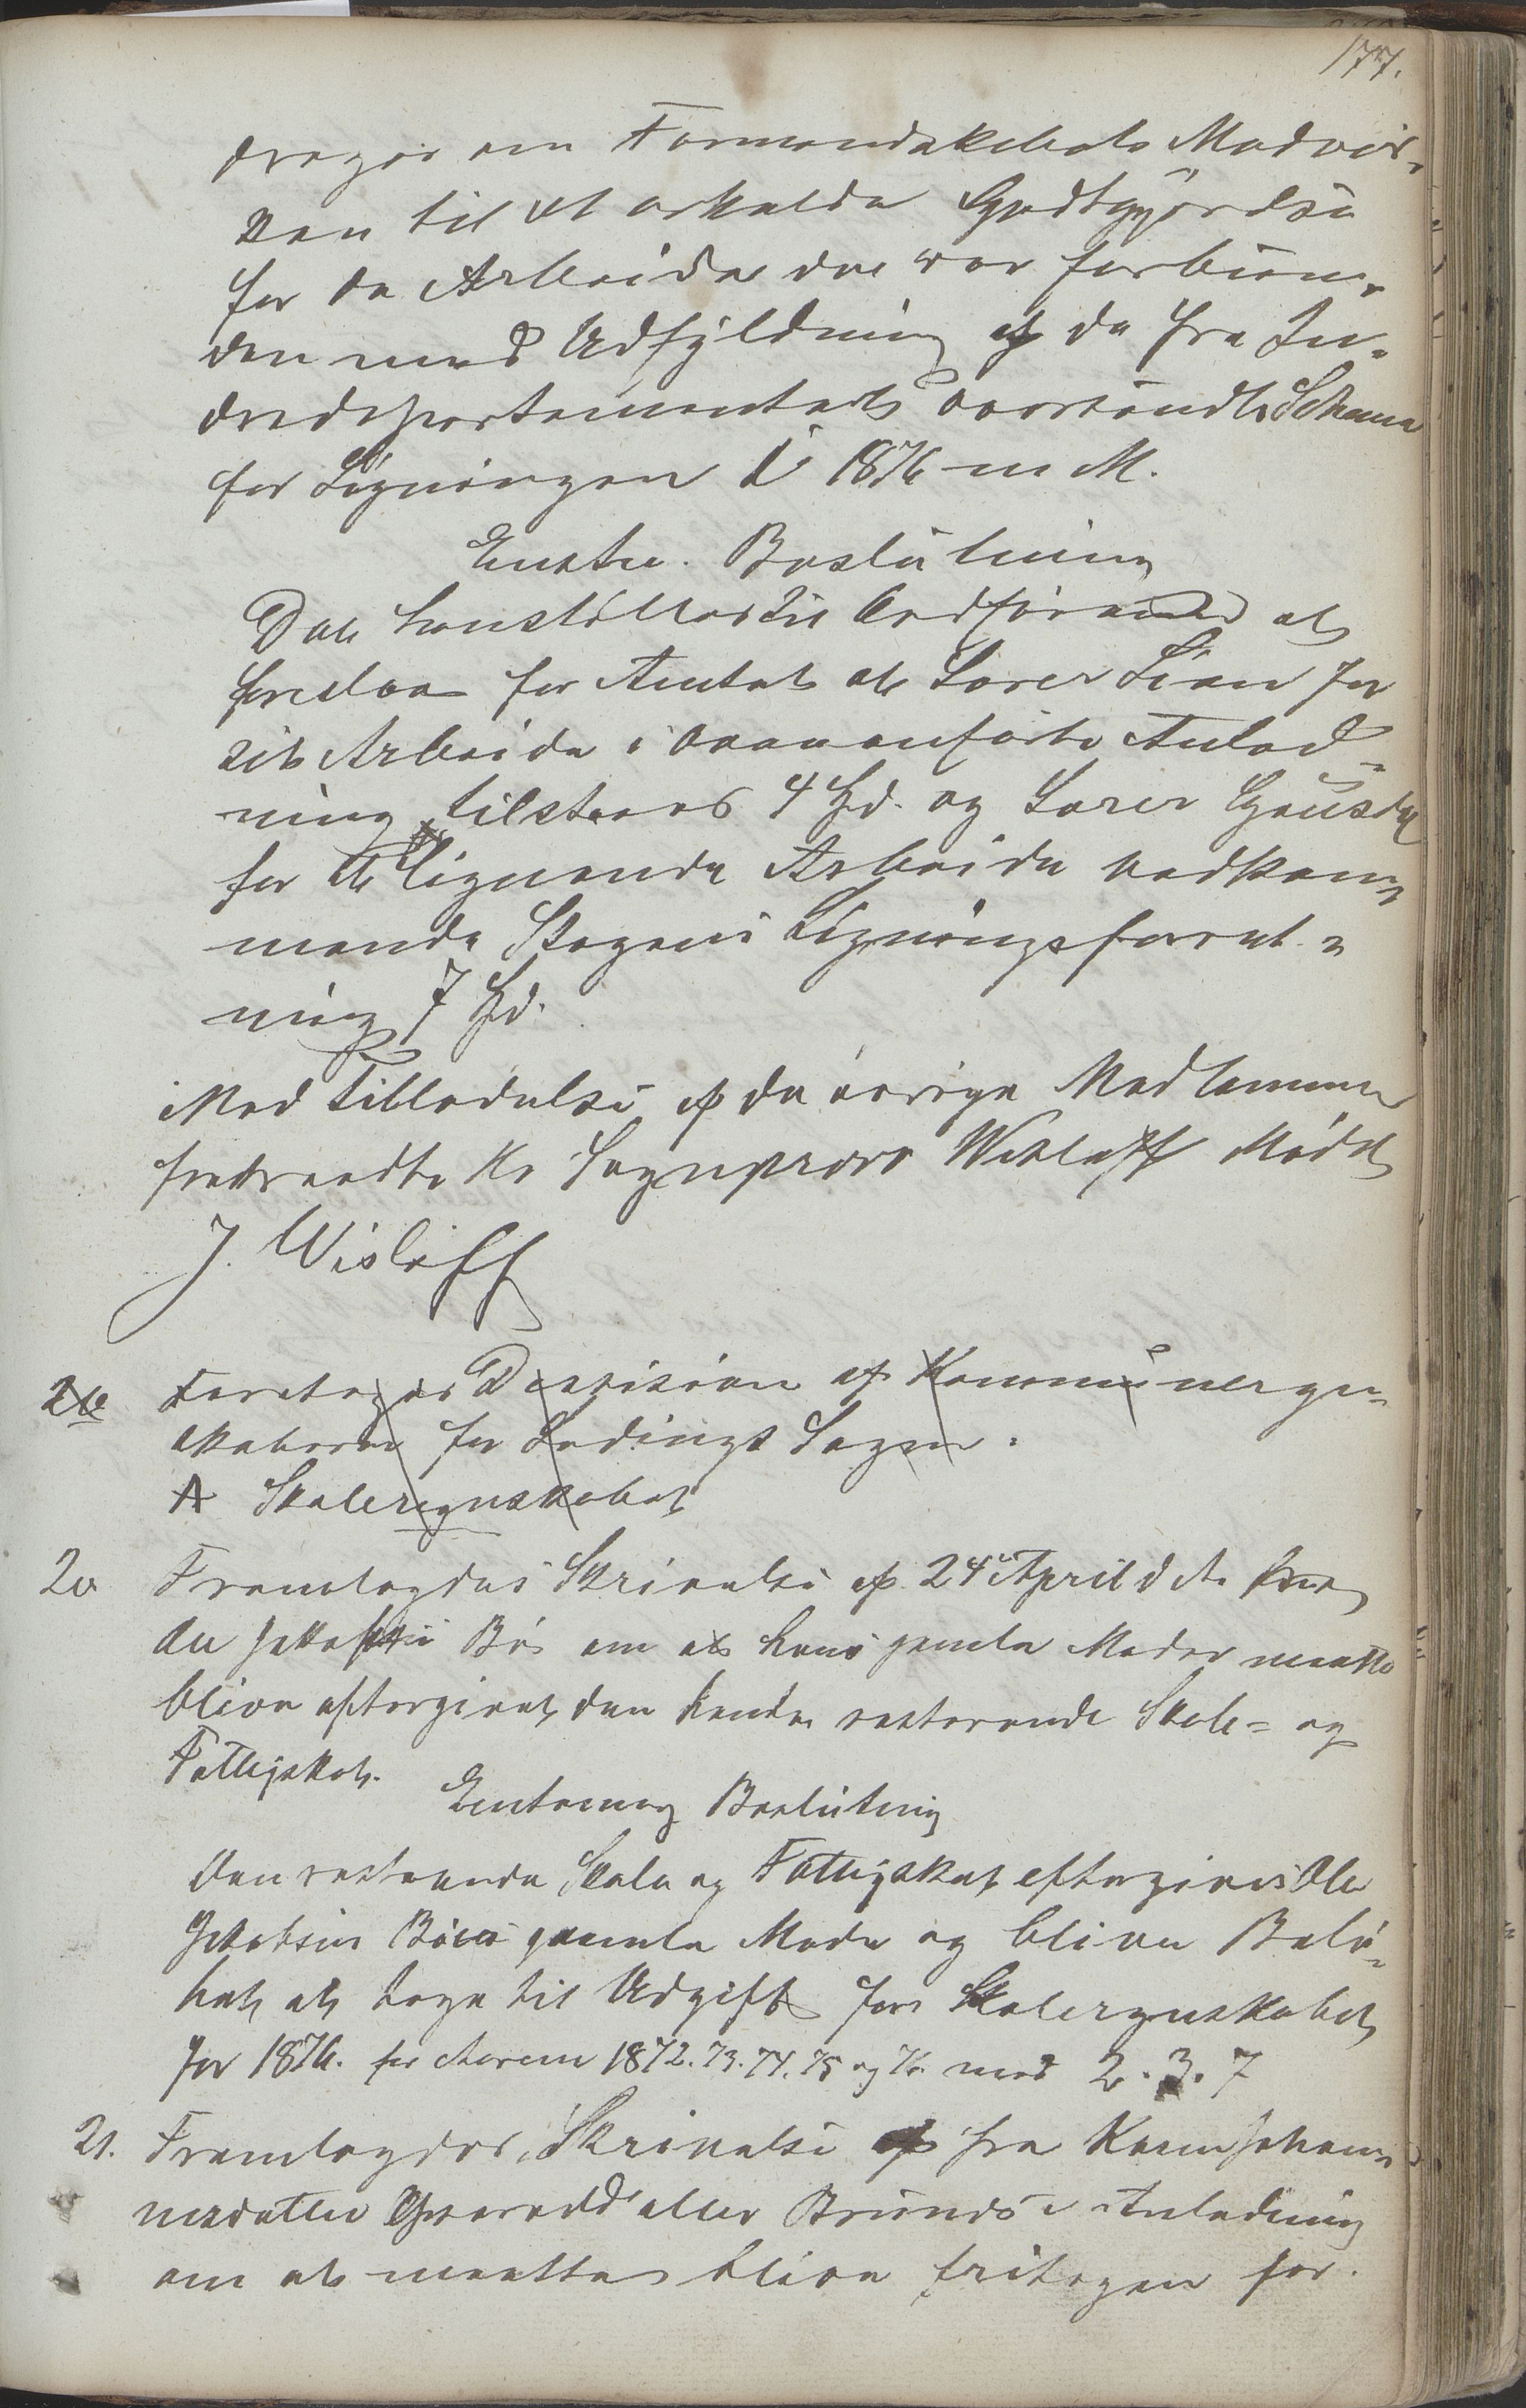 177.
drager om Formandskabets Medvir-
ken til at erholde Godtgjörelse
for de Arbeide der var forbun-
den med Udfyldning af de fra In-
dredepartementets oversendte Schema
for Ligningen i 1876 m M.
Enste. Beslutning
Det henstilles til Ordföreren at
foreslaa for Amtet at Lærer Lian for
sit Arbeide i ovenanförte Anled-
ning tilstaaes 4 Spd. og Lærer
for lignende Arbeide vedkom-
mende Sognets Ligningsforret-
ning 7 Spd.
Med Tilladelse af de övrige Medlemmer
fratraadte Hr Sognepræst Wisløff Mödet
J. Wislöff
20 Foretoges Decision af Kommuneregn-
skaberne for Lödings Sogn.
A Skoleregnskabet
20 Fremlagdes Skrivelse af 24 April d A fra
Ole Bö om at hans gamle Moder maatte
blive eftergivet den hende resterende Skole- og
Fattigskat.
Enstemmig Beslutning
Den resterende Skole og Fattigskat eftergives Ole
Böes gamle Moder og bliver Belö-
bet at tage til Udgift for Skoleregnskabet
for 1876. for Aarene 1872. 73. 74. 75 og 76 med 2. 3. 7
21. Fremlagdes Skrivelse fra Karen Johan-
nesdatter eller i Anledning
om at maatte blive fritagen for